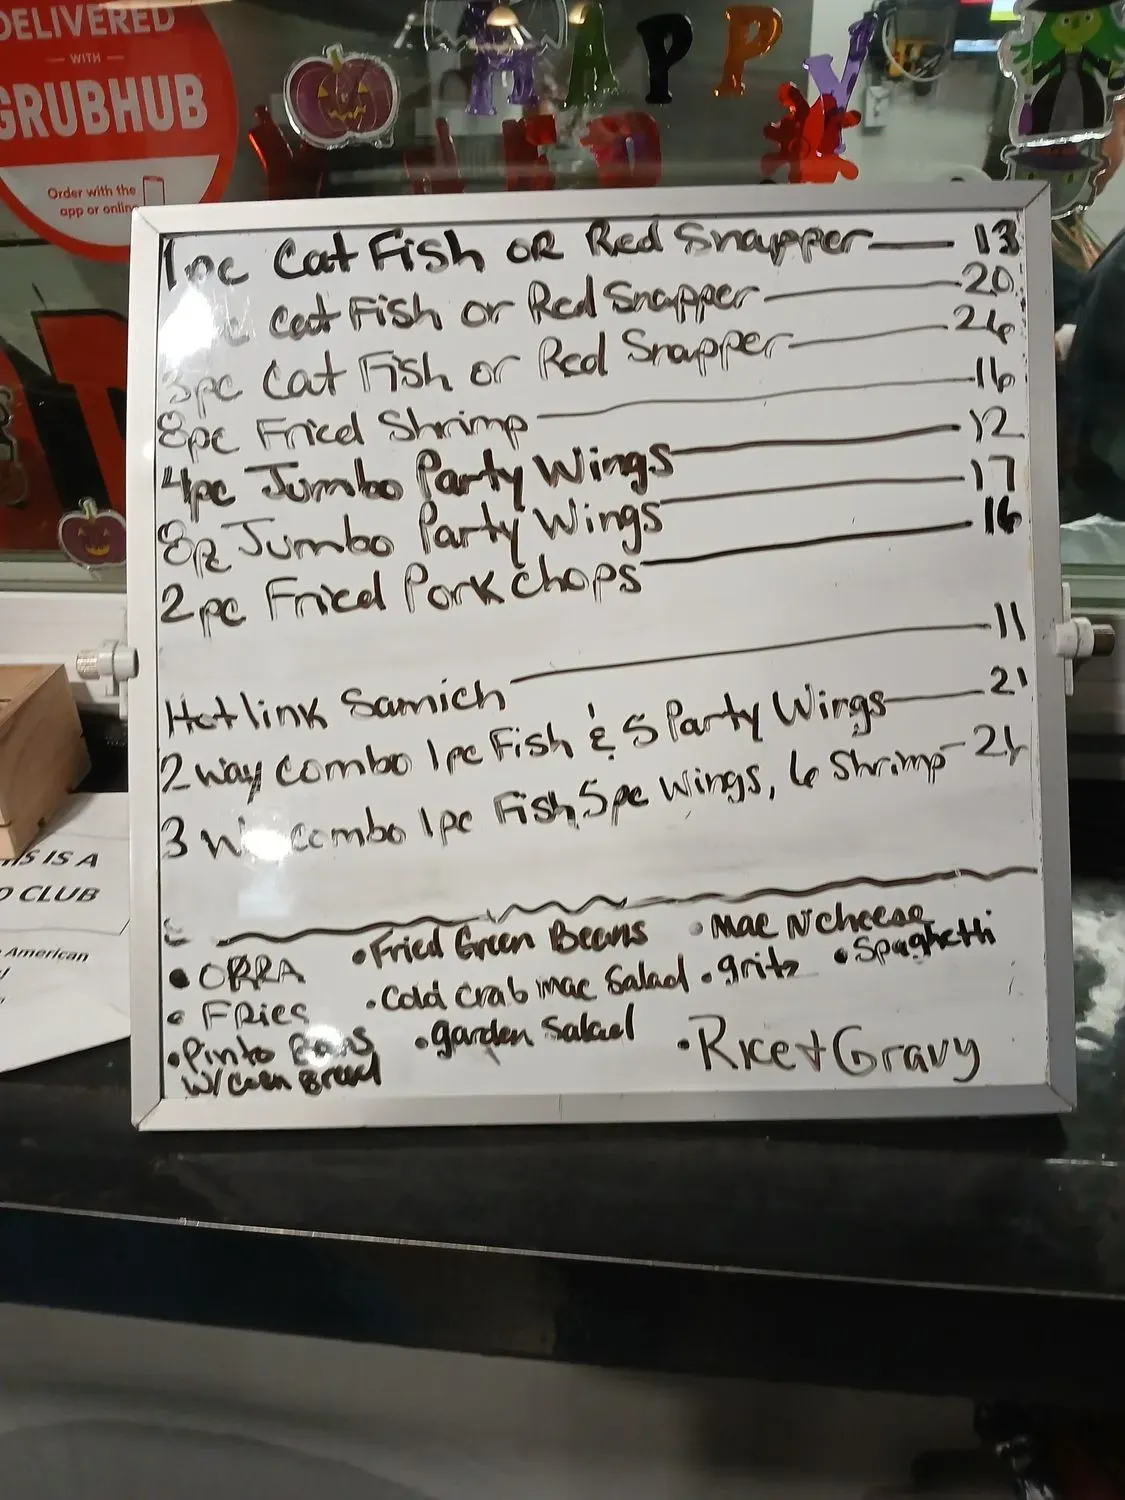 DELIVERED
WITH
GRUBHUB
Order with the
app or online
HAPPY
1pc Cat Fish OR Red Snapper — 13
Cat Fish or Red Snapper — 20
3pc Cat Fish or Red Snapper — 26
8pc Fried Shrimp — 16
4pc Jumbo Party Wings — 12
8pc Jumbo Party Wings — 17
2pc Fried Pork chops — 16
Hotlink Samich — 11
2 way combo 1pc Fish & 5 Party Wings — 21
3 combo 1pc Fish, 5pc Wings, 6 Shrimp —
• OKRA
• FRies
• Pinto Beans
W/Corn Bread
• Fried Green Beans
• Cold Crab mac Salad
• garden Salad
• Mac N cheese
• gritz
• Spaghetti
• Rice + Gravy
IS A
CLUB
American